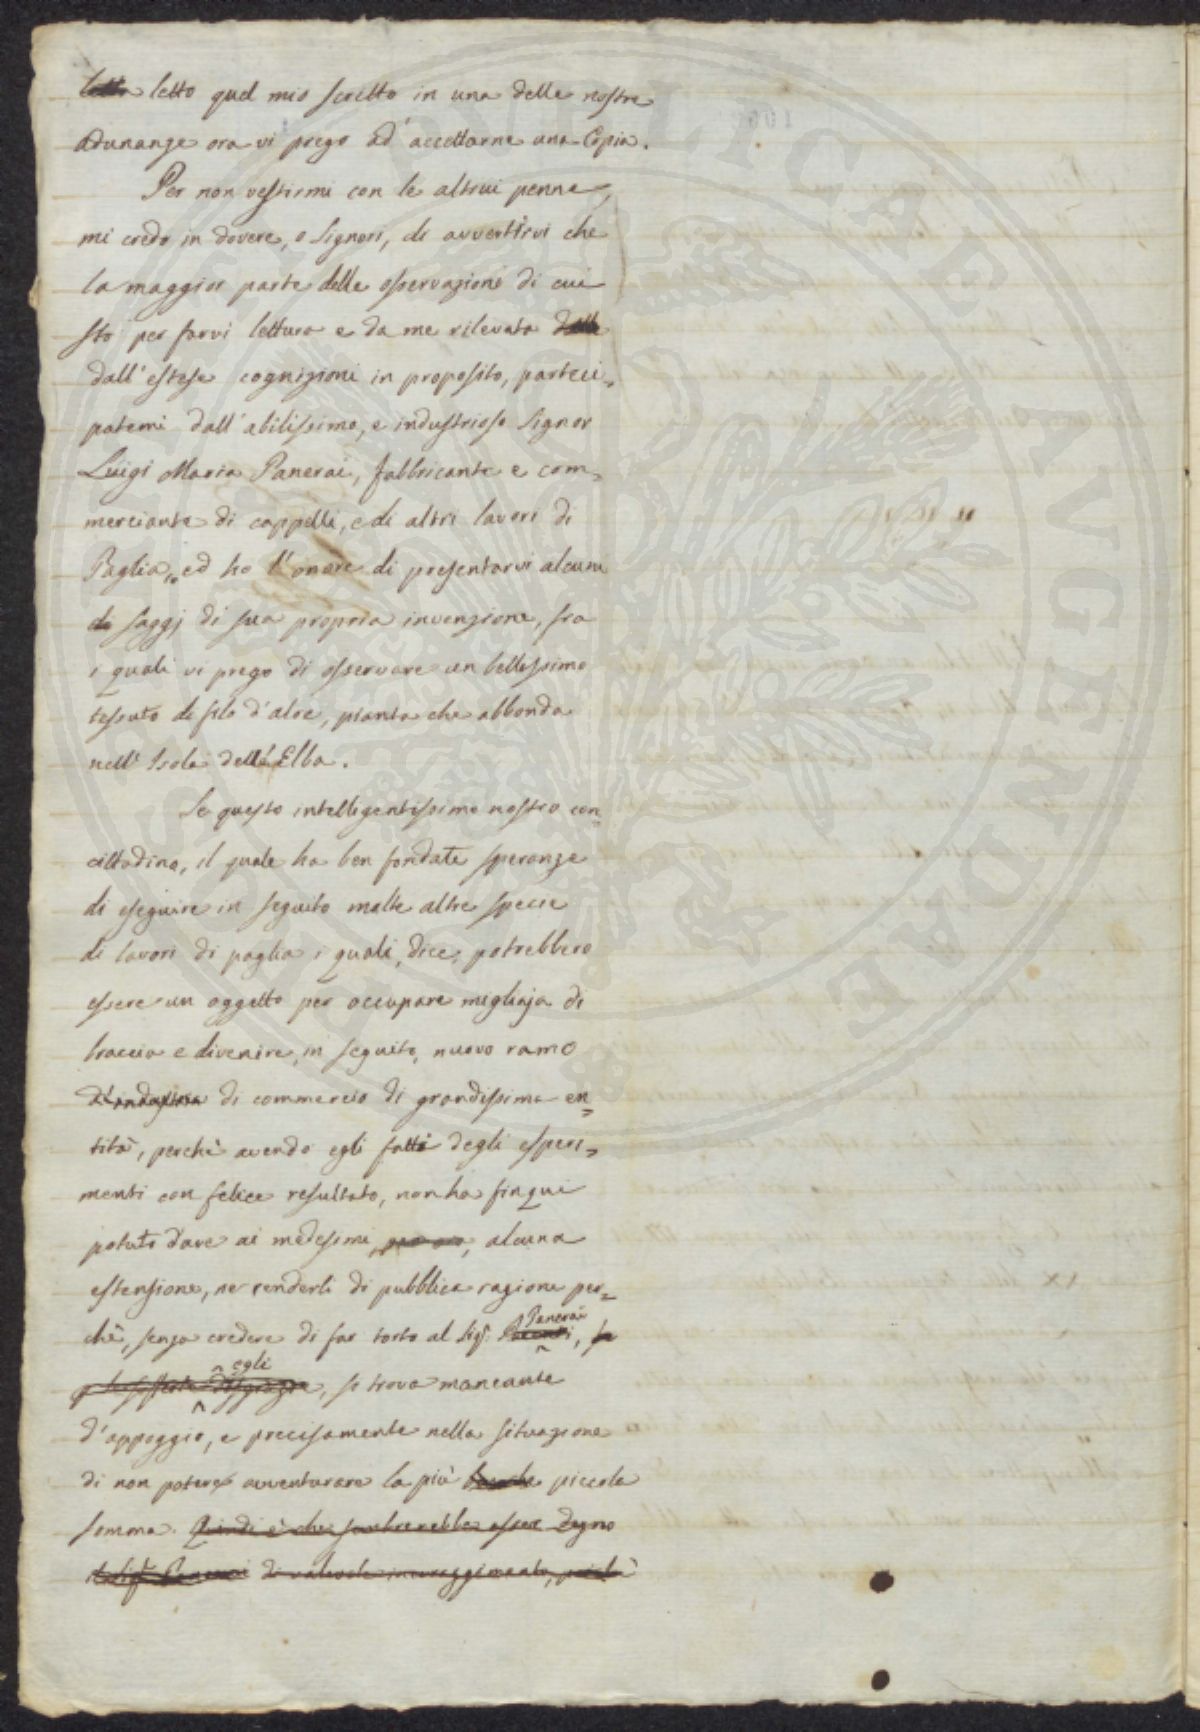 letto quel mio scritto in una delle nostre
adunanze ora vi prego ad' accettarne una Copia.
Per non vestirmi con le altrui penne,
mi credo in dovere, o Signori, di avvertirvi che
la maggior parte delle osservazioni di cui
sto per farvi lettura e da me rilevata dalle
dall'estese cognizioni in proposito, parteci=
patemi dall'abilissimo, e industrioso Signor
Luigi Maria Panerai, fabbricante e com=
merciante di cappelli, e di altri lavori di
Paglia, ed ho l'onore di presentarvi alcuni
di saggj di sua propria invenzione, fra
i quali vi prego di osservare un bellissimo
tessuto di filo d'aloe, pianta che abbonda
nell' Isola dell'Elba.
Se questo intelligentissimo nostro con=
cittadino, il quale ha ben fondate speranze
di eseguire in seguito molte altre specie
di lavori di paglia i quali, dice, potrebbero
essere un oggetto per occupare migliaja di
braccia e divenire, in seguito, nuovo ramo
d'industria di commercio di grandissima en=
tità, perchè avendo egli fatti degli esperi=
menti con felice resultato, non ha finqui
potuto dare ai medesimi, alcuna
estensione, ne renderli di pubblica ragione per=
chè, senza credere di far torto al Sig.r Panerai,
egli, si trova mancante
d'appoggio, e precisamente nella situazione
di non potere avventurare la più piccola
somma. Quindi è che sembrerebbe esser degno
il Sig.r Panerai di valevole incoraggimento, poichè